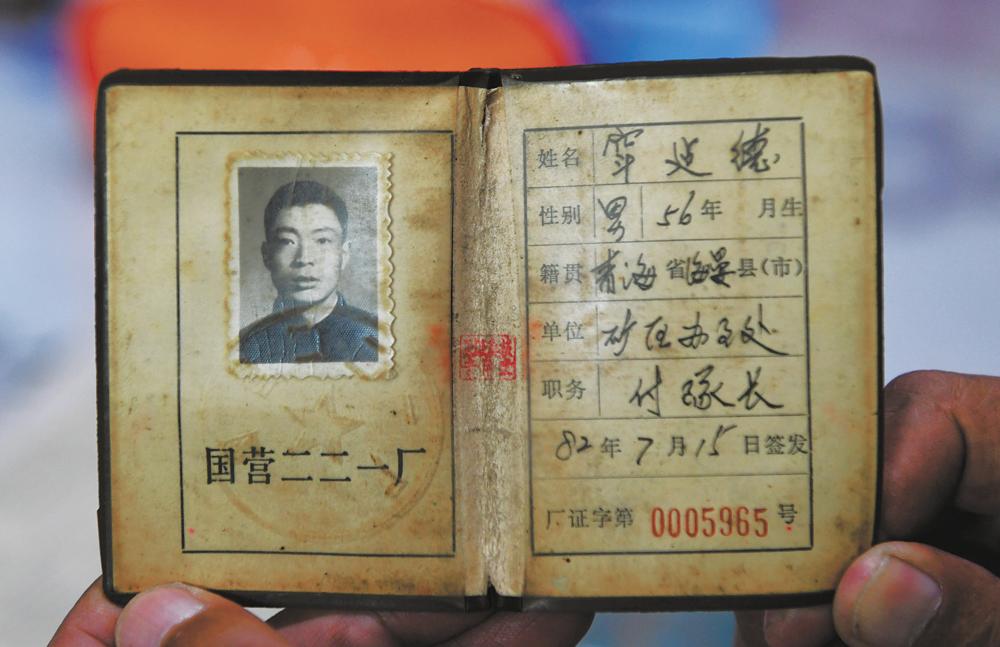 国营二二一厂
姓名 德
性别 男 56年 月生
籍贯 青海省海晏县(市)
单位 矿区办事处
职务 付隊长
82年7月15日签发
厂证字第 0005965 号